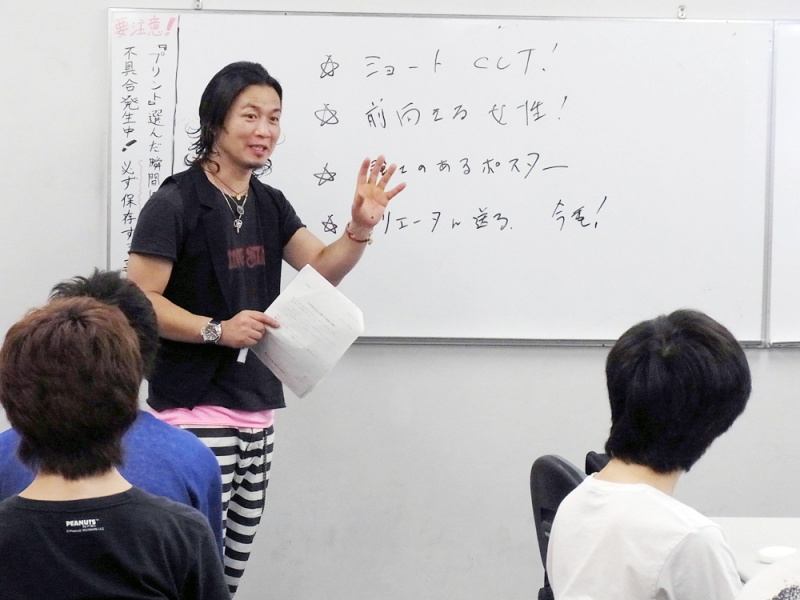 要注意!
『プリント』選んだ瞬間に
不具合発生中! 必ず保存す
☆ ショート CUT!
☆ 前向きる 女性!
☆ のあるポスター
☆ リエータに送る. 今
PEANUTS